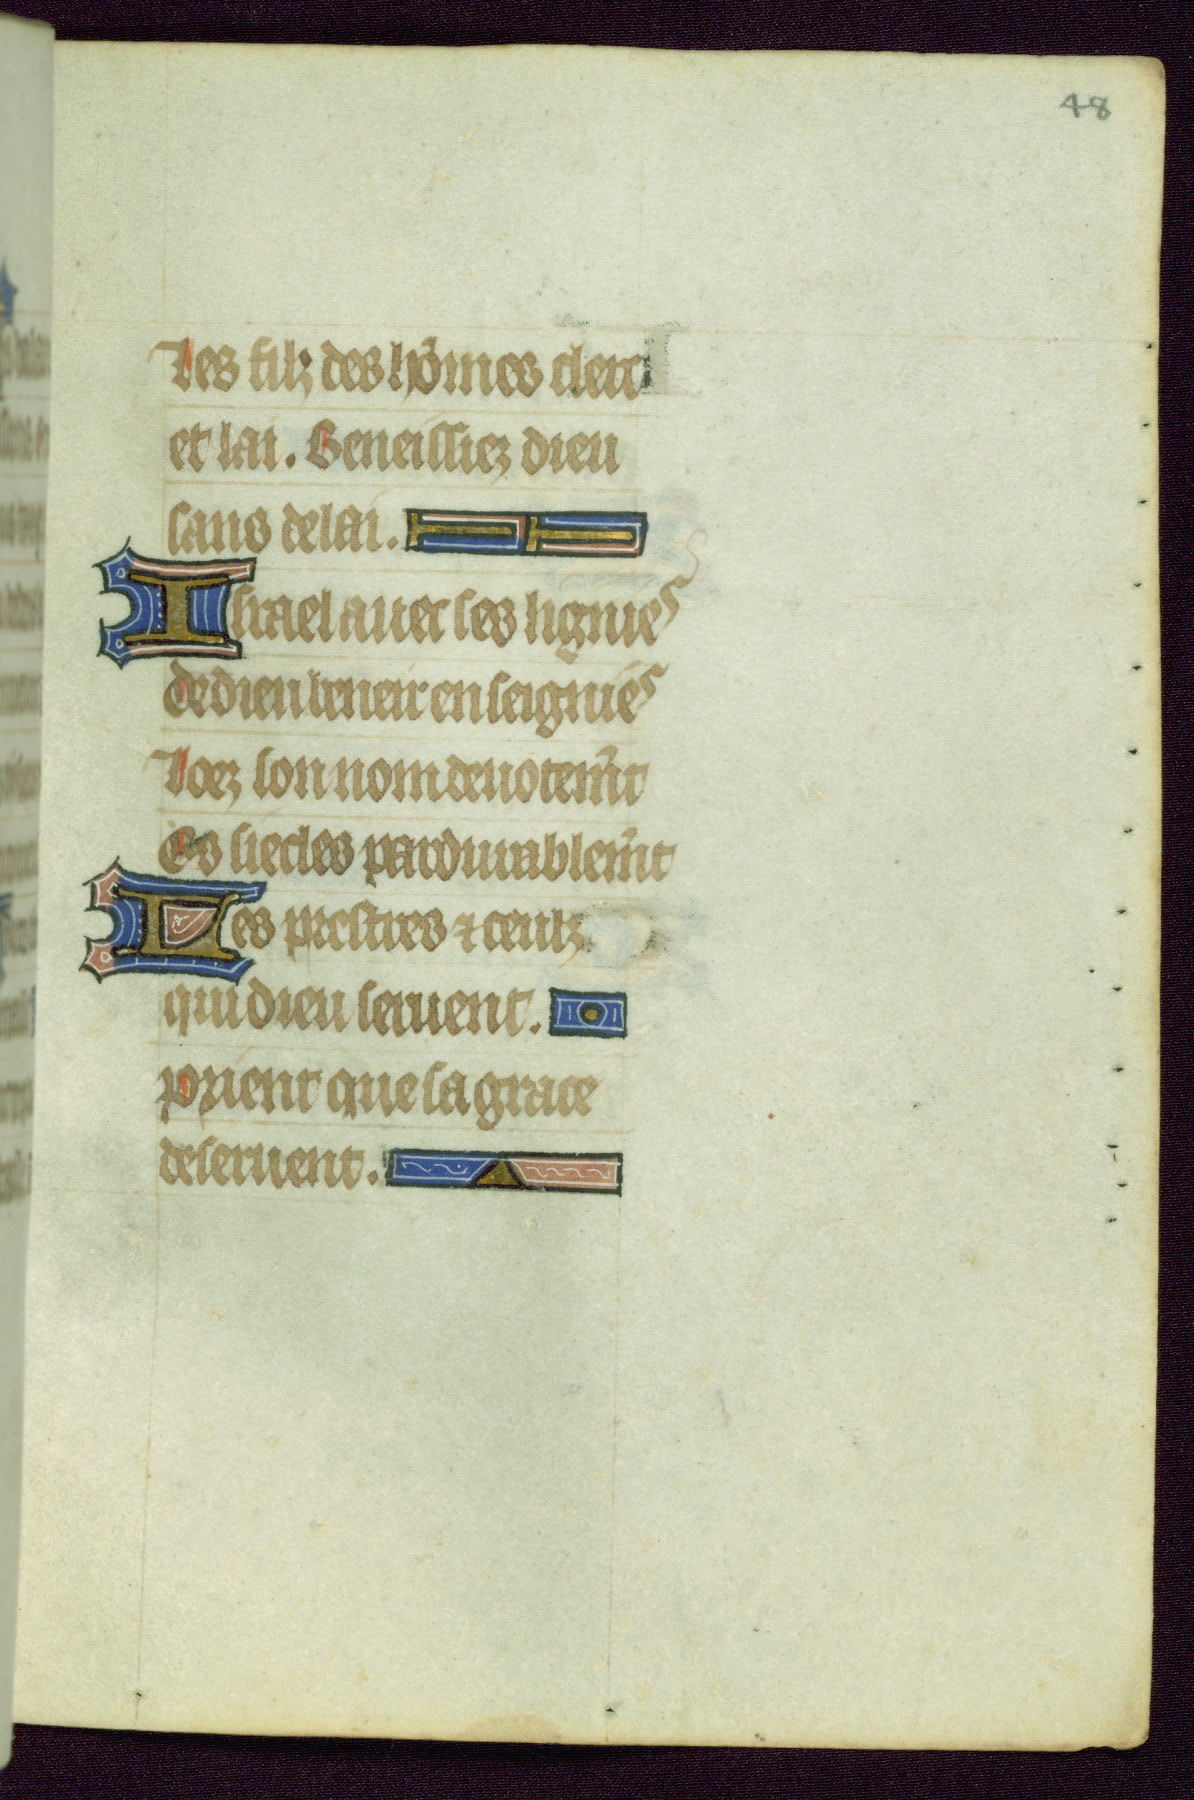 48
Les filz des hõmes clerc
et lai. Beneissiez dieu
sans delai.
Israel auec ses lignies
de dieu beneir enseignies
Loez son nom deuotem̃t
Es siecles pardurablem̃t
Les prestres ⁊ ceulz
qui dieu seruent.
prient que sa grace
deseruent.